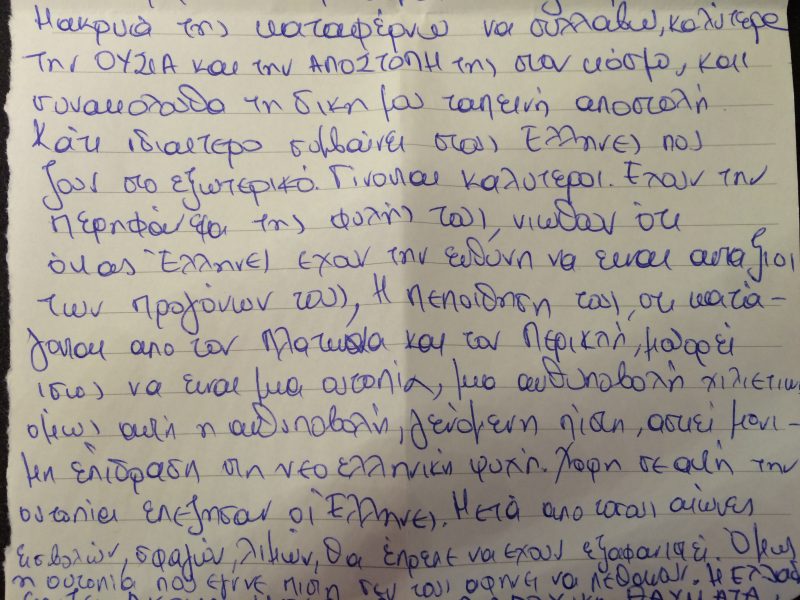 Μακρυά της καταφέρνω να συλλάβω, καλύτερα
την ΟΥΣΙΑ και την ΑΠΟΣΤΟΛΗ της στον κόσμο, και
συνακόλουθα τη δικη μου ταπεινή αποστολή
Κάτι ιδιαιτερο συμβαίνει στους Έλληνες που
ζουν στο εξωτερικό. Γίνονται καλυτεροι. Εχουν την
περηφάνεια της φυλής τους, νιωθουν ότι
όντας Έλληνες εχουν την ευθύνη να ειναι ανταξιοι
των προγόνων τους, Η πεποίθηση τους, οτι κατά-
γονται απο τον Πλατωνα και τον Περικλή, μπορεί
ισως να ειναι μια ουτοπία, μια αυθυποβολή χιλιετιων
όμως αυτή η αυθυποβολή, γενόμενη πίστη, ασκεί μονι-
μη επίδραση στη νεοελληνική ψυχή. Χαρη σε αυτή την
ουτοπία επεζησαν οι Έλληνες. Μετά απο τοσους αιώνες
εισβολών, σφαγών, λιμών, θα έπρεπε να εχουν εξαφανιστεί. Όμως
η ουτοπία που εγινε πιστη δεν τους αφηνει να πεθανουν. Η Ελλάδα